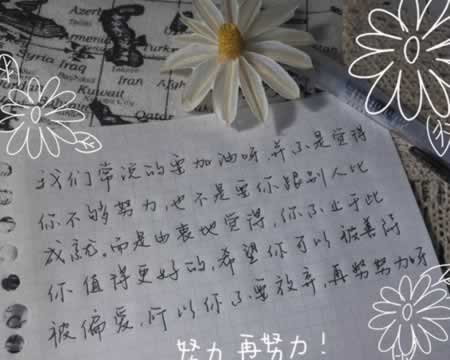 Azerb
Armenia
Turkm
Syria Iraq
Baghdad
Kuwait
我们常说的要加油呀,并不是觉得
你不够努力,也不是要你跟别人比
成就。而是由衷地觉得,你不止于此
你值得更好的,希望你可以被善待
被偏爱,所以你不要放弃,再努努力呀
努力 再努力!